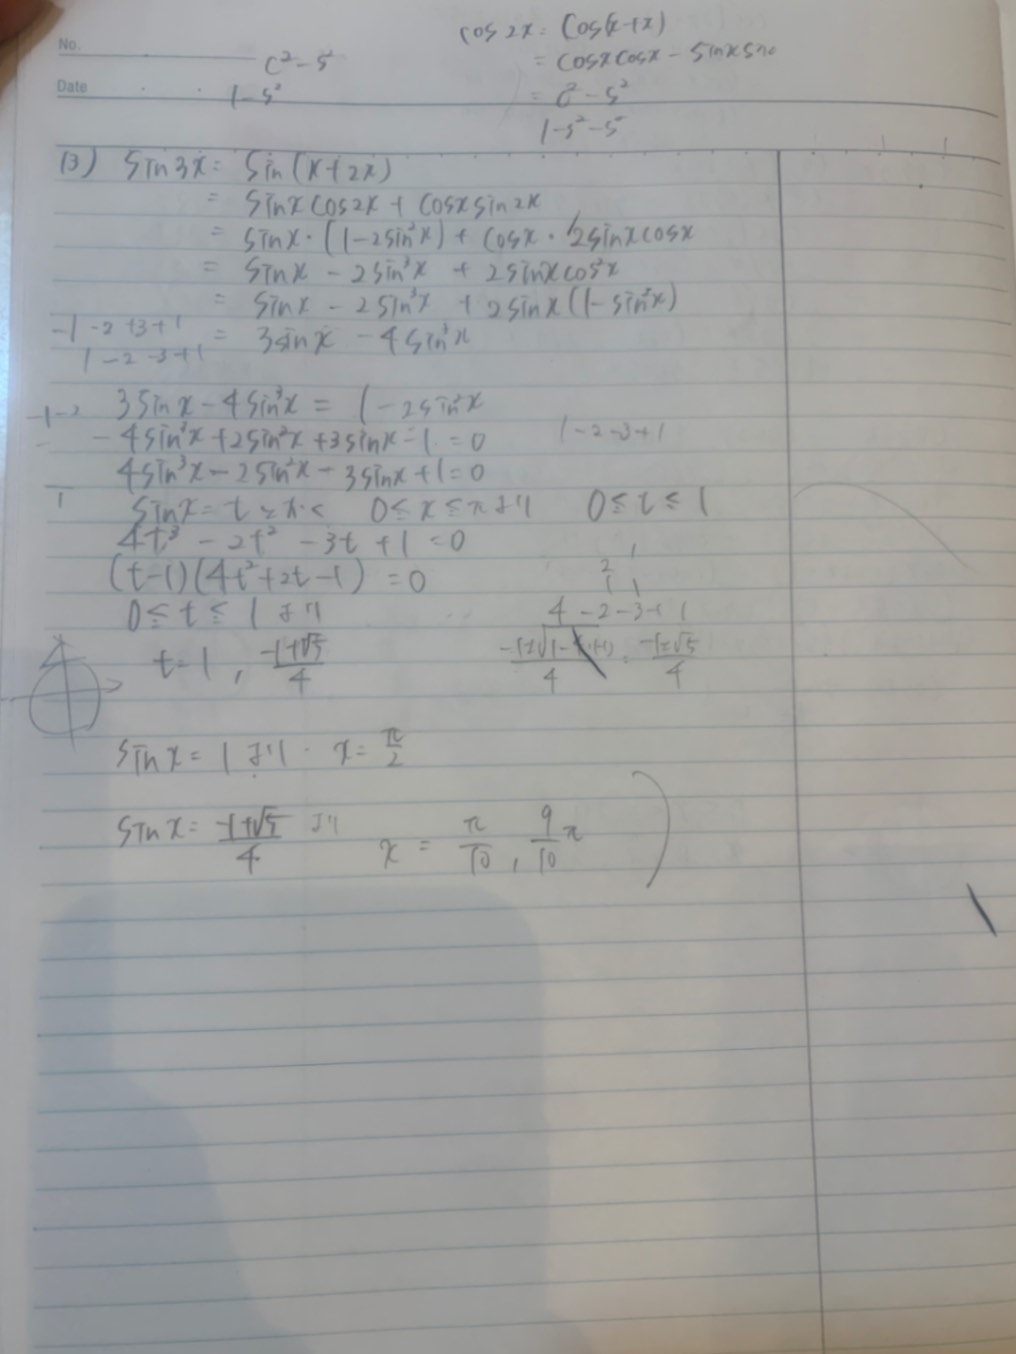 cos 2x = cos(x+x)
= cosxcosx - sinxsin
= c² - s²
1-s²-s²
No.
c²-s²
Date
1-s²
(3) sin3x = sin(x+2x)
= sinxcos2x + cosxsin2x
= sinx・(1-2sin²x) + cosx・2sinxcosx
= sinx - 2sin³x + 2sinxcos²x
= sinx - 2sin³x + 2sinx(1-sin²x)
-1 -2 +3+1
= 3sinx - 4sin³x
1 -2 -3+1
3sinx - 4sin³x = 1-2sin²x
-1-2
-4sin³x+2sin²x+3sinx-1=0
1-2-3+1
4sin³x-2sin²x-3sinx+1=0
sinx=tとおく 0≦x≦πより 0≦t≦1
4t³ - 2t² - 3t + 1 = 0
(t-1)(4t²+2t-1) = 0
0≦t≦1より
4 -2 -3+1
t=1, (-1+√5)/4
(-1±√5)/4
sinx=1より x = π/2
sinx = (-1+√5)/4 より x = π/10, 9/10 π